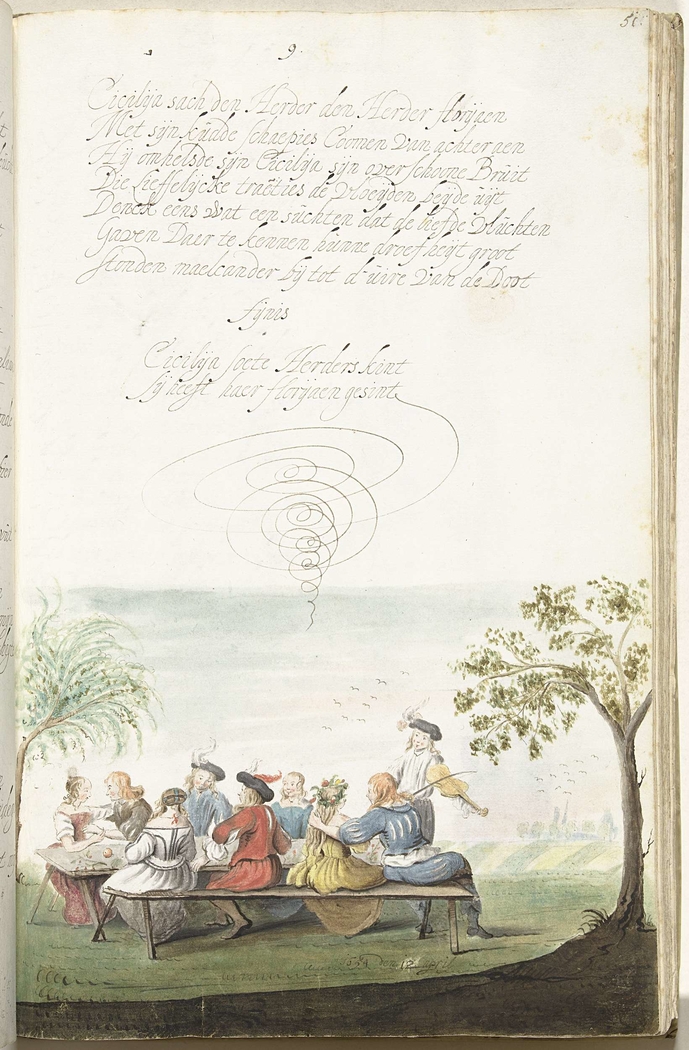 51.
9.
Cicilija sach den Herder den Herder florijaen
Met sijn kudde schaepies Coomen Van achter aen
Hij omhelsde sijn Cicilija sijn overschoone Bruit
Die Lieffelijcke tracties de Vloeijden beijde uijt
Denck eens wat een suchten dat de liefde Vluchten
Gaven Daer te kennen hunne droefheijt groot
stonden maelcander bij tot d'uire Van de Doot
fijnis
Cicilija soete Herders kint
sij heeft haer florijaen gesint